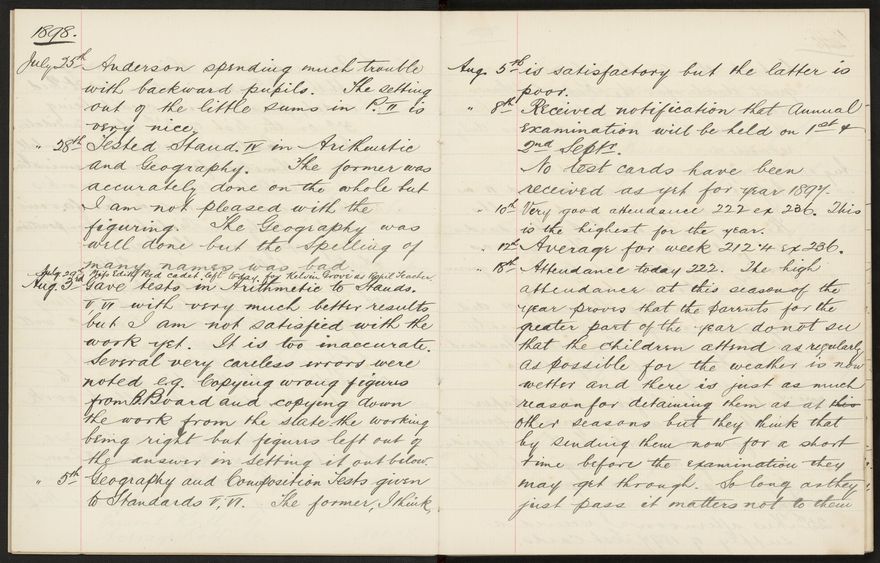 1898.
July 25th Anderson spending much trouble
with backward pupils. The setting
out of the little sums in P. II is
very nice.
" 28th Tested Stand. IV in Arithmetic
and Geography. The former was
accurately done on the whole but
I am not pleased with the
figuring. The Geography was
well done but the spelling of
many names was bad.
July 29th Miss Edith cadet left today for Kelvin Grove as Pupil Teacher.
Aug. 3rd Gave tests in Arithmetic to Stands.
V, VI with very much better results
but I am not satisfied with the
work yet. It is too inaccurate.
Several very careless errors were
noted e.g. Copying wrong figures
from B.Board and copying down
the work from the slate the working
being right but figures left out of
the answer in setting it out below.
" 5th Geography and Composition Tests given
to Standards V, VI. The former, I think,
Aug. 5th is satisfactory but the latter is
poor.
" 8th Received notification that Annual
examination will be held on 1st &
2nd Septr.
No test cards have been
received as yet for year 1897.
" 10th Very good attendance 222 ex 236. This
is the highest for the year.
" 12th Average for week 212.4 ex 236.
" 18th Attendance today 222. The high
attendance at this season of the
year proves that the parents for the
greater part of the year do not see
that the children attend as regularly
as possible for the weather is now
wetter and there is just as much
reason for detaining them as at this
other seasons but they think that
by sending them now for a short
time before the examination they
may get through. So long as they
just pass it matters not to them